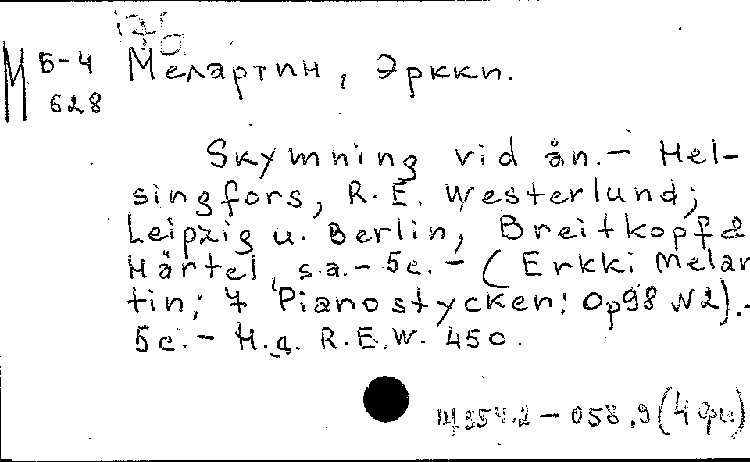 М Б-4 Мелартин, Эркки.
628
Skymning vid ån. – Hel-
singfors, R. E. Westerlund;
Leipzig u. Berlin, Breitkopf &
Härtel, s.a. – 5 с. – (Erkki Melar
tin; 4 Pianostycken: Op 98 N 2). –
5 с. – Н.д. R.E.W. 450.
Щ354.2 – 058.9 (4 фи)